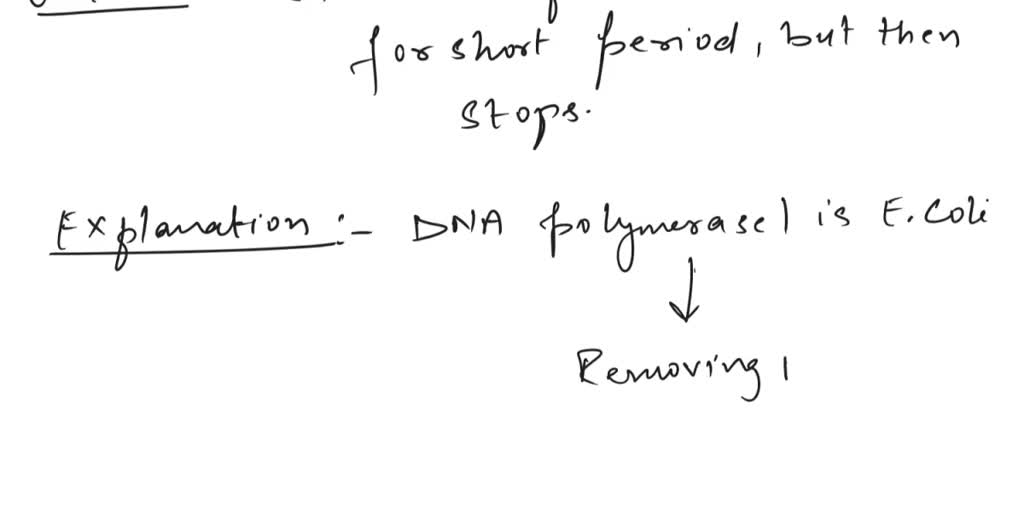 for short period, but then
stops.
Explanation :- DNA polymerase | is E. Coli
↓
Removing